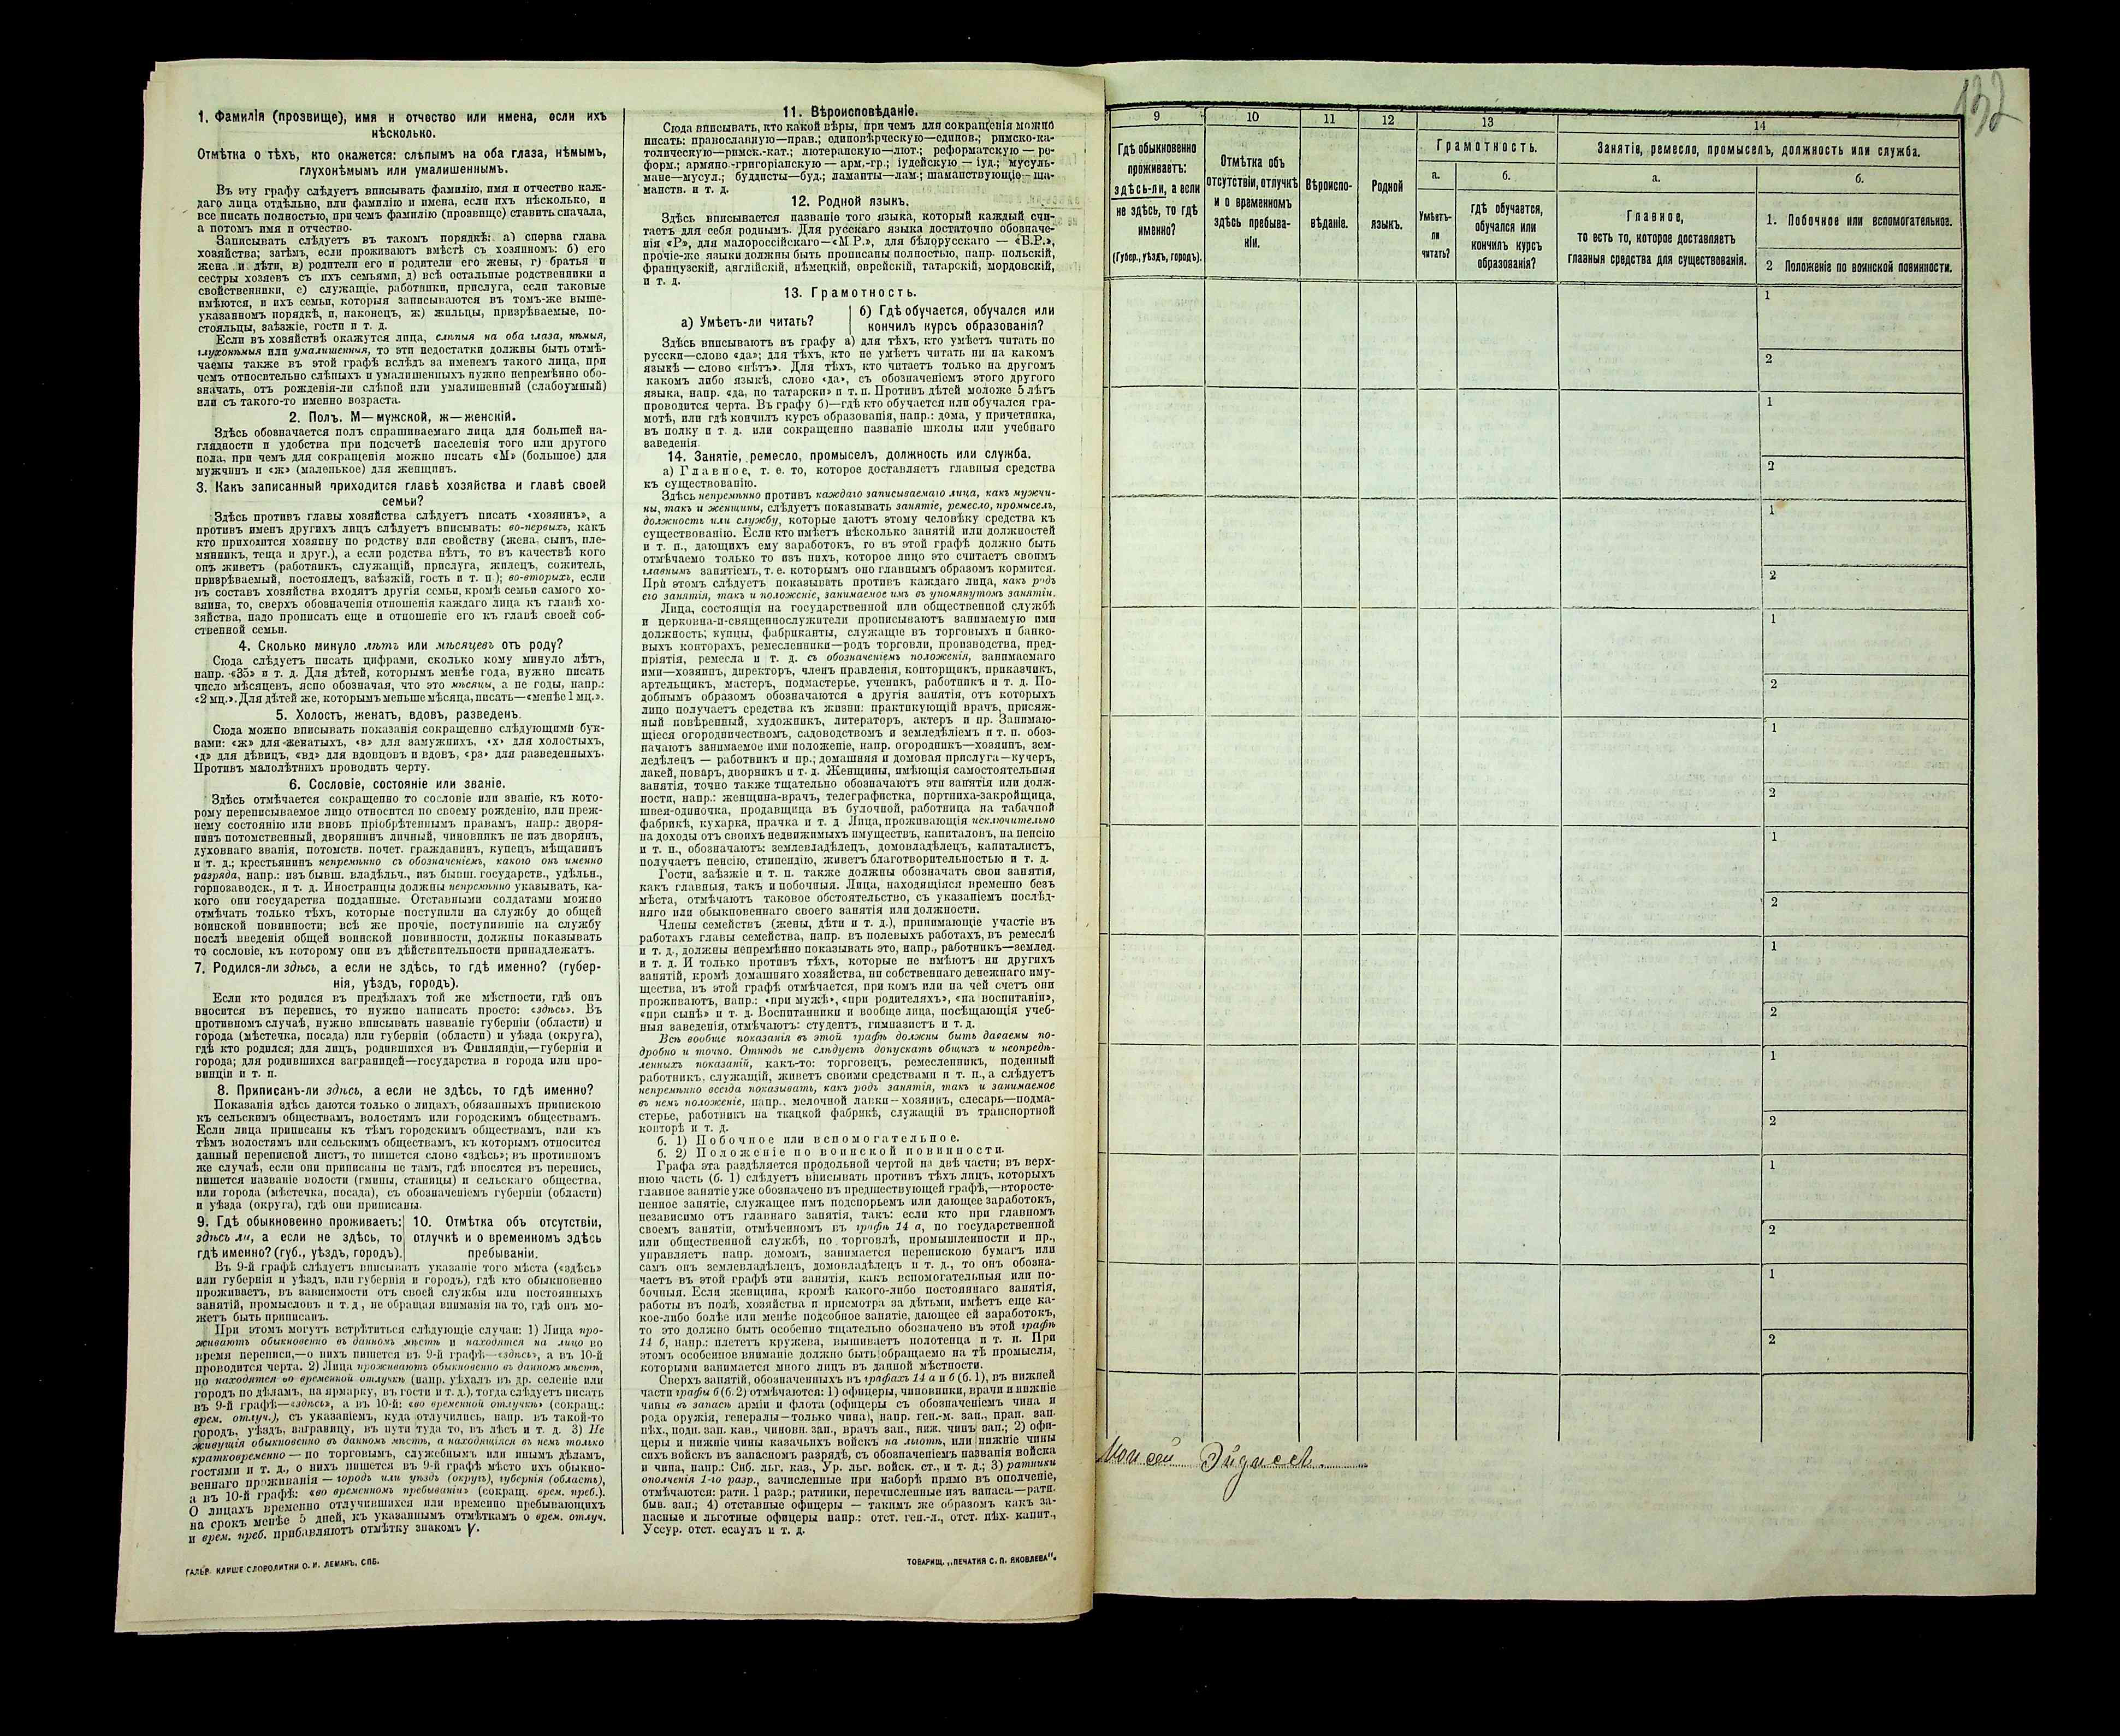 1. Фамилія (прозвище), имя и отчество или имена, если ихъ
нѣсколько.
Отмѣтка о тѣхъ, кто окажется: слѣпымъ на оба глаза, нѣмымъ,
глухонѣмымъ или умалишеннымъ.
Въ эту графу слѣдуетъ вписывать фамилію, имя и отчество каж-
даго лица отдѣльно, или фамилію и имена, если ихъ нѣсколько, и
все писать полностью, при чемъ фамилію (прозвище) ставить сначала,
а потомъ имя и отчество.
Записывать слѣдуетъ въ такомъ порядкѣ: а) сперва глава
хозяйства; затѣмъ, если проживаютъ вмѣстѣ съ хозяиномъ: б) его
жена и дѣти, в) родители его и родители его жены, г) братья и
сестры хозяевъ съ ихъ семьями, д) всѣ остальные родственники и
свойственники, е) служащіе, работники, прислуга, если таковые
имѣются, и ихъ семьи, которыя записываются въ томъ-же выше-
указанномъ порядкѣ, и, наконецъ, ж) жильцы, призрѣваемые, по-
стояльцы, заѣзжіе, гости и т. д.
Если въ хозяйствѣ окажутся лица, слѣпыя на оба глаза, нѣмыя,
глухонѣмыя или умалишенныя, то эти недостатки должны быть отмѣ-
чаемы также въ этой графѣ вслѣдъ за именемъ такого лица, при
чемъ относительно слѣпыхъ и умалишенныхъ нужно непремѣнно обо-
значать, отъ рожденія-ли слѣпой или умалишенный (слабоумный)
или съ такого-то именно возраста.
2. Полъ. М—мужской, ж—женскій.
Здѣсь обозначается полъ спрашиваемаго лица для большей на-
глядности и удобства при подсчетѣ населенія того или другого
пола, при чемъ для сокращенія можно писать «М» (большое) для
мужчинъ и «ж» (маленькое) для женщинъ.
3. Какъ записанный приходится главѣ хозяйства и главѣ своей
семьи?
Здѣсь противъ главы хозяйства слѣдуетъ писать «хозяинъ», а
противъ именъ другихъ лицъ слѣдуетъ вписывать: во-первыхъ, какъ
кто приходится хозяину по родству или свойству (жена, сынъ, пле-
мянникъ, теща и друг.), а если родства нѣтъ, то въ качествѣ кого
онъ живетъ (работникъ, служащій, прислуга, жилецъ, сожитель,
призрѣваемый, постоялецъ, заѣзжій, гость и т. п.); во-вторыхъ, если
въ составъ хозяйства входятъ другія семьи, кромѣ семьи самого хо-
зяина, то, сверхъ обозначенія отношенія каждаго лица къ главѣ хо-
зяйства, надо прописать еще и отношеніе его къ главѣ своей соб-
ственной семьи.
4. Сколько минуло лѣтъ или мѣсяцевъ отъ роду?
Сюда слѣдуетъ писать цифрами, сколько кому минуло лѣтъ,
напр. «35» и т. д. Для дѣтей, которымъ менѣе года, нужно писать
число мѣсяцевъ, ясно обозначая, что это мѣсяцы, а не годы, напр.:
«2 мц.». Для дѣтей же, которымъ меньше мѣсяца, писать—«менѣе 1 мц.».
5. Холостъ, женатъ, вдовъ, разведенъ.
Сюда можно вписывать показанія сокращенно слѣдующими бук-
вами: «ж» для женатыхъ, «з» для замужнихъ, «х» для холостыхъ,
«д» для дѣвицъ, «вд» для вдовцовъ и вдовъ, «рз» для разведенныхъ.
Противъ малолѣтнихъ проводить черту.
6. Сословіе, состояніе или званіе.
Здѣсь отмѣчается сокращенно то сословіе или званіе, къ кото-
рому переписываемое лицо относится по своему рожденію, или преж-
нему состоянію или вновь пріобрѣтеннымъ правамъ, напр.: дворя-
нинъ потомственный, дворянинъ личный, чиновникъ не изъ дворянъ,
духовнаго званія, потомств. почет. гражданинъ, купецъ, мѣщанинъ
и т. д.; крестьянинъ непремѣнно съ обозначеніемъ, какого онъ именно
разряда, напр.: изъ бывш. владѣльч., изъ бывш. государств., удѣльн.,
горнозаводск., и т. д. Иностранцы должны непремѣнно указывать, ка-
кого они государства подданные. Отставными солдатами можно
отмѣчать только тѣхъ, которые поступили на службу до общей
воинской повинности; всѣ же прочіе, поступившіе на службу
послѣ введенія общей воинской повинности, должны показывать
то сословіе, къ которому они въ дѣйствительности принадлежатъ.
7. Родился-ли здѣсь, а если не здѣсь, то гдѣ именно? (губер-
нія, уѣздъ, городъ).
Если кто родился въ предѣлахъ той же мѣстности, гдѣ онъ
вносится въ перепись, то нужно написать просто: «здѣсь». Въ
противномъ случаѣ, нужно вписывать названіе губерніи (области) и
города (мѣстечка, посада) или губерніи (области) и уѣзда (округа),
гдѣ кто родился; для лицъ, родившихся въ Финляндіи,—губерніи и
города; для родившихся заграницей—государства и города или про-
винціи и т. п.
8. Приписанъ-ли здѣсь, а если не здѣсь, то гдѣ именно?
Показанія здѣсь даются только о лицахъ, обязанныхъ припискою
къ сельскимъ обществамъ, волостямъ или городскимъ обществамъ.
Если лица приписаны къ тѣмъ городскимъ обществамъ, или къ
тѣмъ волостямъ или сельскимъ обществамъ, къ которымъ относится
данный переписной листъ, то пишется слово «здѣсь»; въ противномъ
же случаѣ, если они приписаны не тамъ, гдѣ вносятся въ перепись,
пишется названіе волости (гмины, станицы) и сельскаго общества,
или города (мѣстечка, посада), съ обозначеніемъ губерніи (области)
и уѣзда (округа), гдѣ они приписаны.
9. Гдѣ обыкновенно проживаетъ:
здѣсь ли, а если не здѣсь, то
гдѣ именно? (губ., уѣздъ, городъ).
10. Отмѣтка объ отсутствіи,
отлучкѣ и о временномъ здѣсь
пребываніи.
Въ 9-й графѣ слѣдуетъ вписывать указаніе того мѣста («здѣсь»
или губернія и уѣздъ, или губернія и городъ), гдѣ кто обыкновенно
проживаетъ, въ зависимости отъ своей службы или постоянныхъ
занятій, промысловъ и т. д., не обращая вниманія на то, гдѣ онъ мо-
жетъ быть приписанъ.
При этомъ могутъ встрѣтиться слѣдующіе случаи: 1) Лица про-
живаютъ обыкновенно въ данномъ мѣстѣ и находятся на лицо во
время переписи,—о нихъ пишется въ 9-й графѣ—«здѣсь», а въ 10-й
проводится черта. 2) Лица проживаютъ обыкновенно въ данномъ мѣстѣ,
но находятся во временной отлучкѣ (напр. уѣхалъ въ др. селеніе или
городъ по дѣламъ, на ярмарку, въ гости и т. д.), тогда слѣдуетъ писать
въ 9-й графѣ—«здѣсь», а въ 10-й: «во временной отлучкѣ» (сокращ.:
врем. отлуч.), съ указаніемъ, куда отлучились, напр. въ такой-то
городъ, уѣздъ, заграницу, въ пути туда то, въ лѣсъ и т. д. 3) Не
живущія обыкновенно въ данномъ мѣстѣ, а находящіяся въ немъ только
кратковременно — по торговымъ, служебнымъ или инымъ дѣламъ,
гостями и т. д., о нихъ пишется въ 9-й графѣ мѣсто ихъ обыкно-
веннаго проживанія — городъ или уѣздъ (округъ), губернія (область),
а въ 10-й графѣ: «во временномъ пребываніи» (сокращ. врем. преб.).
О лицахъ временно отлучившихся или временно пребывающихъ
на срокъ менѣе 5 дней, къ указаннымъ отмѣткамъ о врем. отлуч.
и врем. преб. прибавляютъ отмѣтку знакомъ V.
ГАЛЬВ. КЛИШЕ СЛОВОЛИТНИ О. И. ЛЕМАНЪ, СПБ.
11. Вѣроисповѣданіе.
Сюда вписывать, кто какой вѣры, при чемъ для сокращенія можно
писать: православную—прав.; единовѣрческую—единов.; римско-ка-
толическую—римск.-кат.; лютеранскую—лют.; реформатскую — ре-
форм.; армяно-григоріанскую — арм.-гр.; іудейскую — іуд.; мусуль-
мане—мусул.; буддисты—буд.; ламаиты—лам.; шаманствующіе—ша-
манств. и т. д.
12. Родной языкъ.
Здѣсь вписывается названіе того языка, который каждый счи-
таетъ для себя роднымъ. Для русскаго языка достаточно обозначе-
нія «Р», для малороссійскаго—«М.Р.», для бѣлорусскаго — «Б.Р.»,
прочіе-же языки должны быть прописаны полностью, напр. польскій,
французскій, англійскій, нѣмецкій, еврейскій, татарскій, мордовскій,
и т. д.
13. Грамотность.
а) Умѣетъ-ли читать?
б) Гдѣ обучается, обучался или
кончилъ курсъ образованія?
Здѣсь вписываютъ въ графу а) для тѣхъ, кто умѣетъ читать по
русски—слово «да»; для тѣхъ, кто не умѣетъ читать ни на какомъ
языкѣ — слово «нѣтъ». Для тѣхъ, кто читаетъ только на другомъ
какомъ либо языкѣ, слово «да», съ обозначеніемъ этого другого
языка, напр. «да, по татарски» и т. п. Противъ дѣтей моложе 5 лѣтъ
проводится черта. Въ графу б)—гдѣ кто обучается или обучался гра-
мотѣ, или гдѣ кончилъ курсъ образованія, напр.: дома, у причетника,
въ полку и т. д. или сокращенно названіе школы или учебнаго
заведенія.
14. Занятіе, ремесло, промыселъ, должность или служба.
а) Главное, т. е. то, которое доставляетъ главныя средства
къ существованію.
Здѣсь непремѣнно противъ каждаго записываемаго лица, какъ мужчи-
ны, такъ и женщины, слѣдуетъ показывать занятіе, ремесло, промыселъ,
должность или службу, которые даютъ этому человѣку средства къ
существованію. Если кто имѣетъ нѣсколько занятій или должностей
и т. п., дающихъ ему заработокъ, то въ этой графѣ должно быть
отмѣчаемо только то изъ нихъ, которое лицо это считаетъ своимъ
главнымъ занятіемъ, т. е. которымъ оно главнымъ образомъ кормится.
При этомъ слѣдуетъ показывать противъ каждаго лица, какъ родъ
его занятія, такъ и положеніе, занимаемое имъ въ упомянутомъ занятіи.
Лица, состоящія на государственной или общественной службѣ
и церковно-и-священнослужители прописываютъ занимаемую ими
должность; купцы, фабриканты, служащіе въ торговыхъ и банко-
выхъ конторахъ, ремесленники—родъ торговли, производства, пред-
пріятія, ремесла и т. д. съ обозначеніемъ положенія, занимаемаго
ими—хозяинъ, директоръ, членъ правленія, конторщикъ, приказчикъ,
артельщикъ, мастеръ, подмастерье, ученикъ, работникъ и т. д. По-
добнымъ образомъ обозначаются и другія занятія, отъ которыхъ
лицо получаетъ средства къ жизни: практикующій врачъ, присяж-
ный повѣренный, художникъ, литераторъ, актеръ и пр. Занимаю-
щіеся огородничествомъ, садоводствомъ и земледѣліемъ и т. п. обоз-
начаютъ занимаемое ими положеніе, напр. огородникъ—хозяинъ, зем-
ледѣлецъ — работникъ и пр.; домашняя и домовая прислуга—кучеръ,
лакей, поваръ, дворникъ и т. д. Женщины, имѣющія самостоятельныя
занятія, точно также тщательно обозначаютъ эти занятія или долж-
ности, напр.: женщина-врачъ, телеграфистка, портниха-закройщица,
швея-одиночка, продавщица въ булочной, работница на табачной
фабрикѣ, кухарка, прачка и т. д. Лица, проживающія исключительно
на доходы отъ своихъ недвижимыхъ имуществъ, капиталовъ, на пенсію
и т. п., обозначаютъ: землевладѣлецъ, домовладѣлецъ, капиталистъ,
получаетъ пенсію, стипендію, живетъ благотворительностью и т. д.
Гости, заѣзжіе и т. п. также должны обозначать свои занятія,
какъ главныя, такъ и побочныя. Лица, находящіяся временно безъ
мѣста, отмѣчаютъ таковое обстоятельство, съ указаніемъ послѣд-
няго или обыкновеннаго своего занятія или должности.
Члены семействъ (жены, дѣти и т. д.), принимающіе участіе въ
работахъ главы семейства, напр. въ полевыхъ работахъ, въ ремеслѣ
и т. д., должны непремѣнно показывать это, напр., работникъ—землед.
и т. д. И только противъ тѣхъ, которые не имѣютъ ни другихъ
занятій, кромѣ домашняго хозяйства, ни собственнаго денежнаго иму-
щества, въ этой графѣ отмѣчается, при комъ или на чей счетъ они
проживаютъ, напр.: «при мужѣ», «при родителяхъ», «на воспитаніи»,
«при сынѣ» и т. д. Воспитанники и вообще лица, посѣщающія учеб-
ныя заведенія, отмѣчаютъ: студентъ, гимназистъ и т. д.
Всѣ вообще показанія въ этой графѣ должны быть даваемы по-
дробно и точно. Отнюдь не слѣдуетъ допускать общихъ и неопредѣ-
ленныхъ показаній, какъ-то: торговецъ, ремесленникъ, поденный
работникъ, служащій, живетъ своими средствами и т. п., а слѣдуетъ
непремѣнно всегда показывать, какъ родъ занятія, такъ и занимаемое
въ немъ положеніе, напр.. мелочной лавки—хозяинъ, слесарь—подма-
стерье, работникъ на ткацкой фабрикѣ, служащій въ транспортной
конторѣ и т. д.
б. 1) Побочное или вспомогательное.
б. 2) Положеніе по воинской повинности.
Графа эта раздѣляется продольной чертой на двѣ части; въ верх-
нюю часть (б. 1) слѣдуетъ вписывать противъ тѣхъ лицъ, которыхъ
главное занятіе уже обозначено въ предшествующей графѣ,—второсте-
пенное занятіе, служащее имъ подспорьемъ или дающее заработокъ,
независимо отъ главнаго занятія, такъ: если кто при главномъ
своемъ занятіи, отмѣченномъ въ графѣ 14 а, по государственной
или общественной службѣ, по торговлѣ, промышленности и пр.,
управляетъ напр. домомъ, занимается перепискою бумагъ или
самъ онъ землевладѣлецъ, домовладѣлецъ и т. д., то онъ обозна-
чаетъ въ этой графѣ эти занятія, какъ вспомогательныя или по-
бочныя. Если женщина, кромѣ какого-либо постояннаго занятія,
работы въ полѣ, хозяйства и присмотра за дѣтьми, имѣетъ еще ка-
кое-либо болѣе или менѣе подсобное занятіе, дающее ей заработокъ,
то это должно быть особенно тщательно обозначено въ этой графѣ
14 б, напр.: плететъ кружева, вышиваетъ полотенца и т. п. При
этомъ особенное вниманіе должно быть обращаемо на тѣ промыслы,
которыми занимается много лицъ въ данной мѣстности.
Сверхъ занятій, обозначенныхъ въ графахъ 14 а и б (б. 1), въ нижней
части графы б (б. 2) отмѣчаются: 1) офицеры, чиновники, врачи и нижніе
чины въ запасѣ арміи и флота (офицеры съ обозначеніемъ чина и
рода оружія, генералы—только чина), напр. ген.-м. зап., прап. зап.
пѣх., подп. зап. кав., чиновн. зап., врачъ зап., ниж. чинъ зап.; 2) офи-
церы и нижніе чины казачьихъ войскъ на льготѣ, или нижніе чины
сихъ войскъ въ запасномъ разрядѣ, съ обозначеніемъ названія войска
и чина, напр.: Сиб. льг. каз., Ур. льг. войск. ст., и т. д.; 3) ратники
ополченія 1-го разр., зачисленные при наборѣ прямо въ ополченіе,
отмѣчаются: ратн. 1 разр.; ратники, перечисленные изъ запаса.—ратн.
быв. зап.; 4) отставные офицеры — такимъ же образомъ какъ за-
пасные и льготные офицеры напр.: отст. ген.-л., отст. пѣх. капит.,
Уссур. отст. есаулъ и т. д.
ТОВАРИЩ. „ПЕЧАТНЯ С. П. ЯКОВЛЕВА".
132
9
10
11
12
13
14
Гдѣ обыкновенно
проживаетъ:
здѣсь-ли, а если
не здѣсь, то гдѣ
именно?
(Губер., уѣздъ, городъ).
Отмѣтка объ
отсутствіи, отлучкѣ
и о временномъ
здѣсь пребыва-
ніи.
Вѣроиспо-
вѣданіе.
Родной
языкъ.
Грамотность.
а.
Умѣетъ-
ли
читать?
б.
гдѣ обучается,
обучался или
кончилъ курсъ
образованія?
Занятіе, ремесло, промыселъ, должность или служба.
а.
Главное,
то есть то, которое доставляетъ
главныя средства для существованія.
б.
1. Побочное или вспомогательное.
2 Положеніе по воинской повинности.
1
2
1
2
1
2
1
2
1
2
1
2
1
2
1
2
1
2
1
2
Моисей